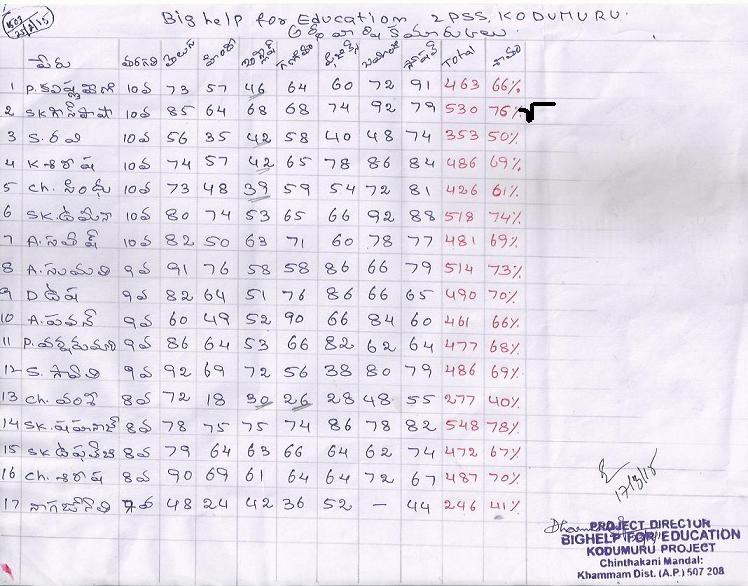 Big help for Education 2PSS, KODUMURU.
పేరు తరగతి తెలుగు హిందీ ఇంగ్లీష్ గణితం సాంఘిక Total శాతం
1 10వ 73 57 46 64 60 72 91 463 66%
2 SK. 10వ 85 64 68 68 74 92 79 530 76%
3 S. రవి 10వ 56 35 42 58 40 48 74 353 50%
4 K. శిరీష 10వ 74 57 42 65 78 86 84 486 69%
5 Ch. సింధు 10వ 73 48 39 59 54 72 81 426 61%
6 SK. 10వ 80 74 53 65 66 92 88 518 74%
7 A. సతీష్ 10వ 82 50 63 71 60 78 77 481 69%
8 A. సుమతి 9వ 91 76 58 58 86 66 79 514 73%
9 D 9వ 82 64 51 76 86 66 65 490 70%
10 A. పవన్ 9వ 60 49 52 90 66 84 60 461 66%
11 P. 9వ 86 64 53 66 82 62 64 477 68%
12 S. 9వ 92 69 72 56 38 80 79 486 69%
13 Ch. వంశీ 8వ 72 18 30 26 28 48 55 277 40%
14 SK. 8వ 78 75 75 74 86 78 82 548 78%
15 SK. 8వ 79 64 63 66 64 62 74 472 67%
16 Ch. శిరీష 8వ 90 69 61 64 64 72 67 487 70%
17 నాగజ్యోతి 7వ 48 24 42 36 52 - 44 246 41%
17/3/15
PROJECT DIRECTOR
BIGHELP FOR EDUCATION
KODUMURU PROJECT
Chinthakani Mandal:
Khammam Dist. (A.P.) 507 208